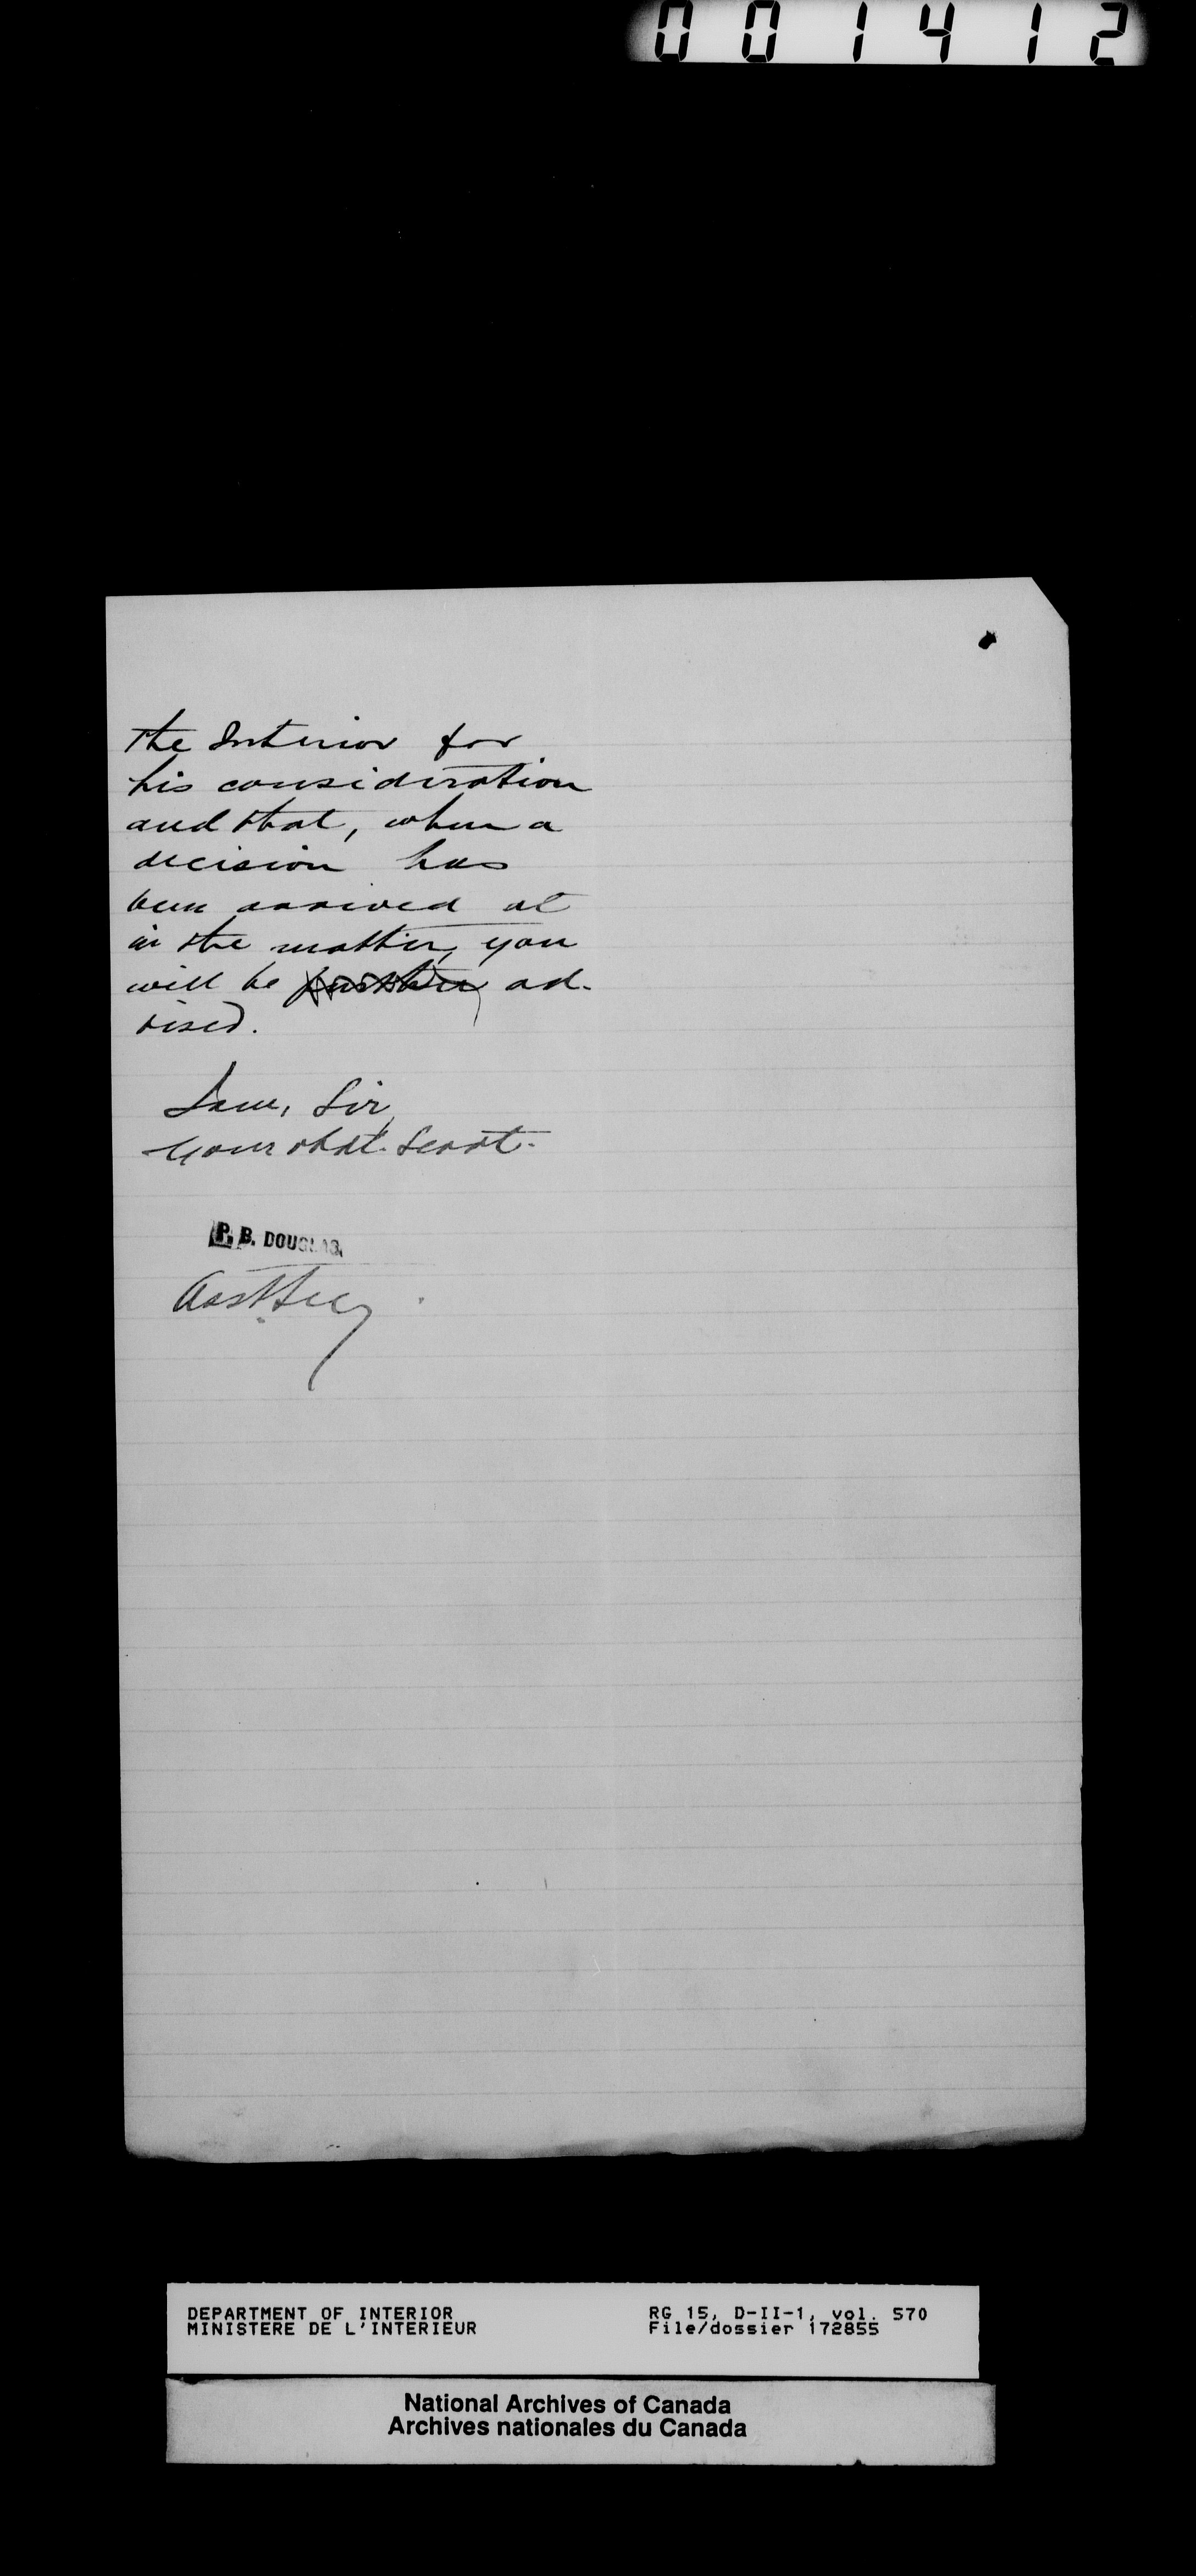 001412
The Interior for
his consideration
and that, when a
decision has
been arrived at
in the matter, you
will be further ad-
vised.
I am, Sir,
Your obdt. Servt.
P. B. DOUGLAS,
Asst. Secy
DEPARTMENT OF INTERIOR
MINISTERE DE L'INTERIEUR
RG 15, D-II-1, vol. 570
File/dossier 172855
National Archives of Canada
Archives nationales du Canada